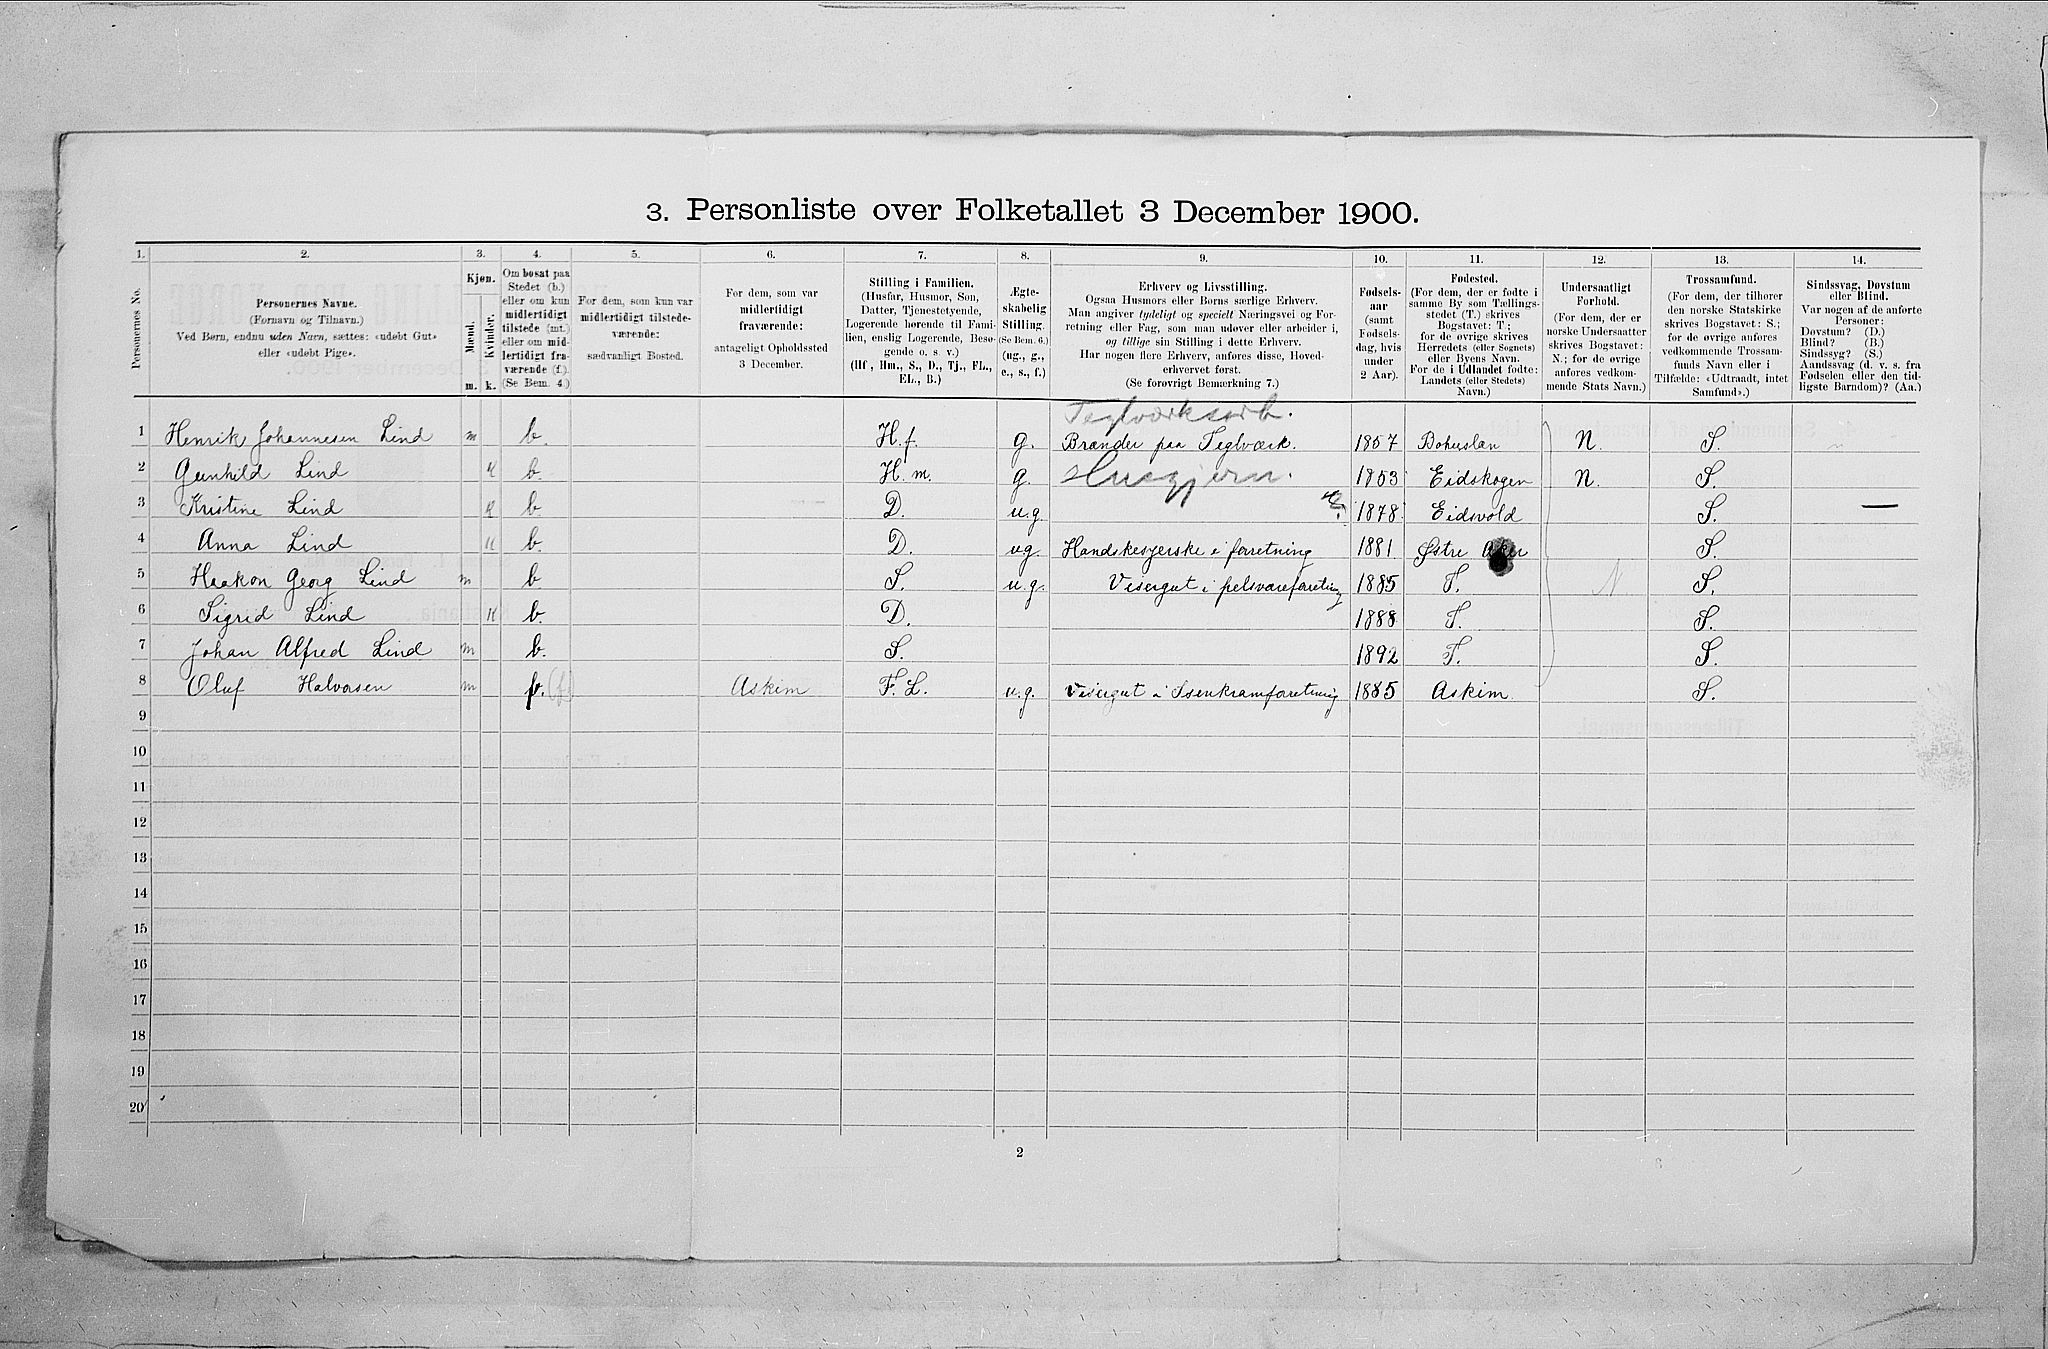 3. Personliste over Folketallet 3 December 1900.
1. 2. 3. 4. 5. 6. 7. 8. 9. 10. 11. 12. 13. 14.
Personernes No.
Personernes Navne.
(Fornavn og Tilnavn.)
Ved Børn, endnu uden Navn, sættes: «udøbt Gut»
eller «udøbt Pige».
Kjøn.
Mænd.
Kvinder.
m. k.
Om bosat paa
Stedet (b.)
eller om kun
midlertidigt
tilstede (mt.)
eller om mid-
lertidigt fra-
værende (f.)
(Se Bem. 4.)
For dem, som kun var
midlertidigt tilstede-
værende:
sædvanligt Bosted.
For dem, som var
midlertidigt
fraværende:
antageligt Opholdssted
3 December.
Stilling i Familien.
(Husfar, Husmor, Søn,
Datter, Tjenestetyende,
Logerende hørende til Fami-
lien, enslig Logerende, Besø-
gende o. s. v.)
(Hf., Hm., S., D., Tj., FL.,
EL., B.)
Ægte-
skabelig
Stilling.
(Se Bem. 6.)
(ug., g.,
e., s., f.)
Erhverv og Livsstilling.
Ogsaa Husmors eller Børns særlige Erhverv.
Man angiver tydeligt og specielt Næringsvei og For-
retning eller Fag, som man udøver eller arbeider i,
og tillige sin Stilling i dette Erhverv.
Har nogen flere Erhverv, anføres disse, Hoved-
erhvervet først.
(Se forøvrigt Bemerkning 7.)
Fødsels-
aar
(samt
Fødsels-
dag, hvis
under
2 Aar).
Fødested.
(For dem, der er fødte i
samme By som Tællings-
stedet (T.) skrives
Bogstavet: T.;
for de øvrige skrives
Herredets (eller Sognets)
eller Byens Navn.
For de i Udlandet fødte:
Landets (eller Stedets)
Navn.)
Undersaatligt
Forhold.
(For dem, der er
norske Undersaatter
skrives Bogstavet:
N.; for de øvrige
anføres vedkom-
mende Stats Navn.)
Trossamfund.
(For dem, der tilhører
den norske Statskirke
skrives Bogstavet: S.;
for de øvrige anføres
vedkommende Trossam-
funds Navn eller i
Tilfælde: «Udtraadt, intet
Samfund».)
Sindssvag, Døvstum
eller Blind.
Var nogen af de anførte
Personer:
Døvstum? (D.)
Blind? (B.)
Sindssyg? (S.)
Aandssvag (d. v. s. fra
Fødselen eller den tid-
ligste Barndom)? (Aa.)
Teglværksarb.
1 Henrik Johannesen Lind m b. H.f. g. Brænder paa Teglværk. 1857 Bohuslän N. S.
2 Gunhild Lind k b. H.m. g. Husgjern. 1853 Eidskogen N. S.
3 Kristine Lind k b. D. u.g. 1878 Eidsvold S. —
4 Anna Lind k b. D. ug. Handskesyerske i forretning 1881 Østre Aker S.
5 Haakon Georg Lind m b S. u.g. Visergut i pelsvareforretning 1885 T. N S.
6 Sigrid Lind k b. D. 1888 T. S.
7 Johan Alfred Lind m b. S. 1892 T. S.
8 Oluf Halvorsen m b. (f) Askim F.L. u.g. Visergut i Isenkramforretning 1885 Askim S.
9
10
11
12
13
14
15
16
17
18
19
20
2